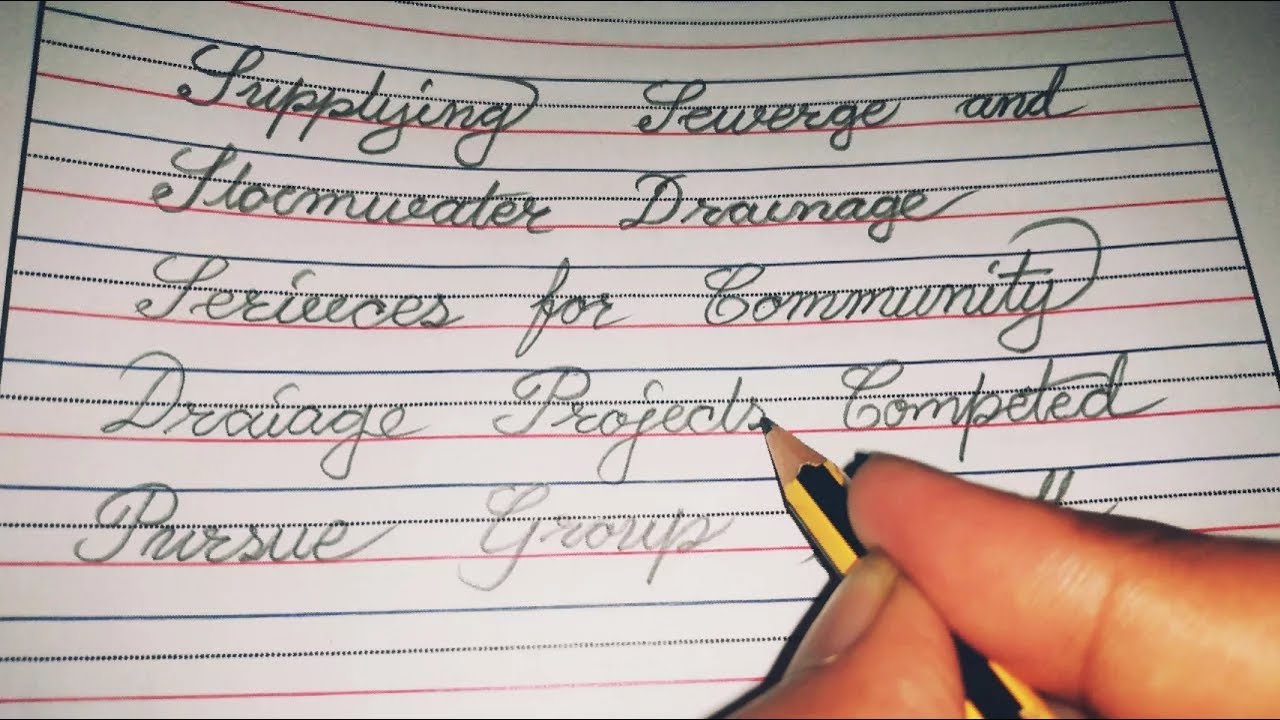 Supplying Sewerge and
Stormwater Drainage
Serivces for Community
Draiage Projects Competed
Pursue Group